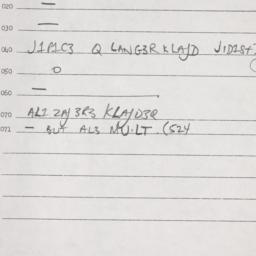 020 —
030 —
040 J1P1C3 Q LANG3R KLAJD J1D1S+
050 O
060 —
070 AL1 ZAJ3R3 KLAJD3Q
071 — BUT AL3 MU.LT (S24